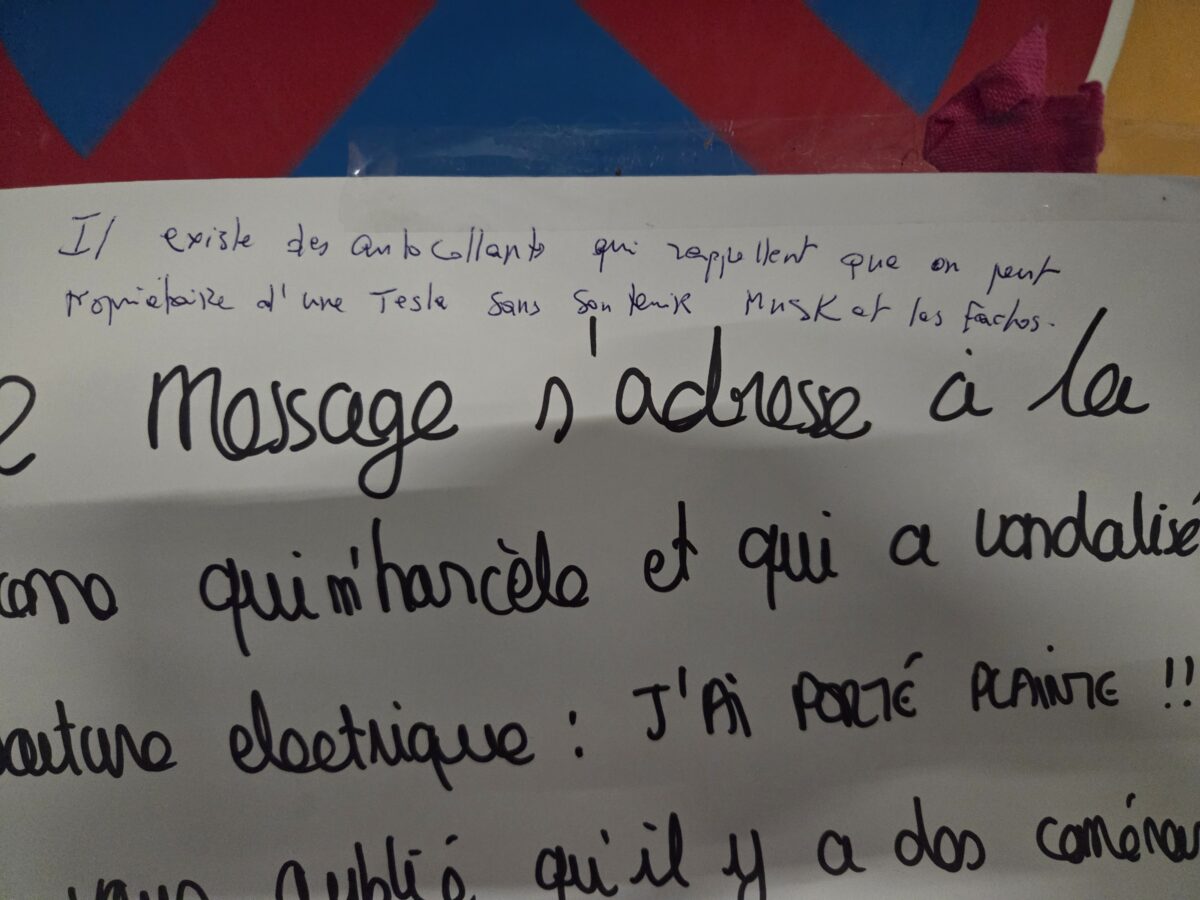 Il existe des autocollants qui rappellent que on peut
propriétaire d'une Tesla sans soutenir Musk et les fachos.
message s'adresse à la
qui m'harcèle et qui a vandalisé
electrique : J'AI PORTÉ PLAINTE !!
oublié qu'il y a des